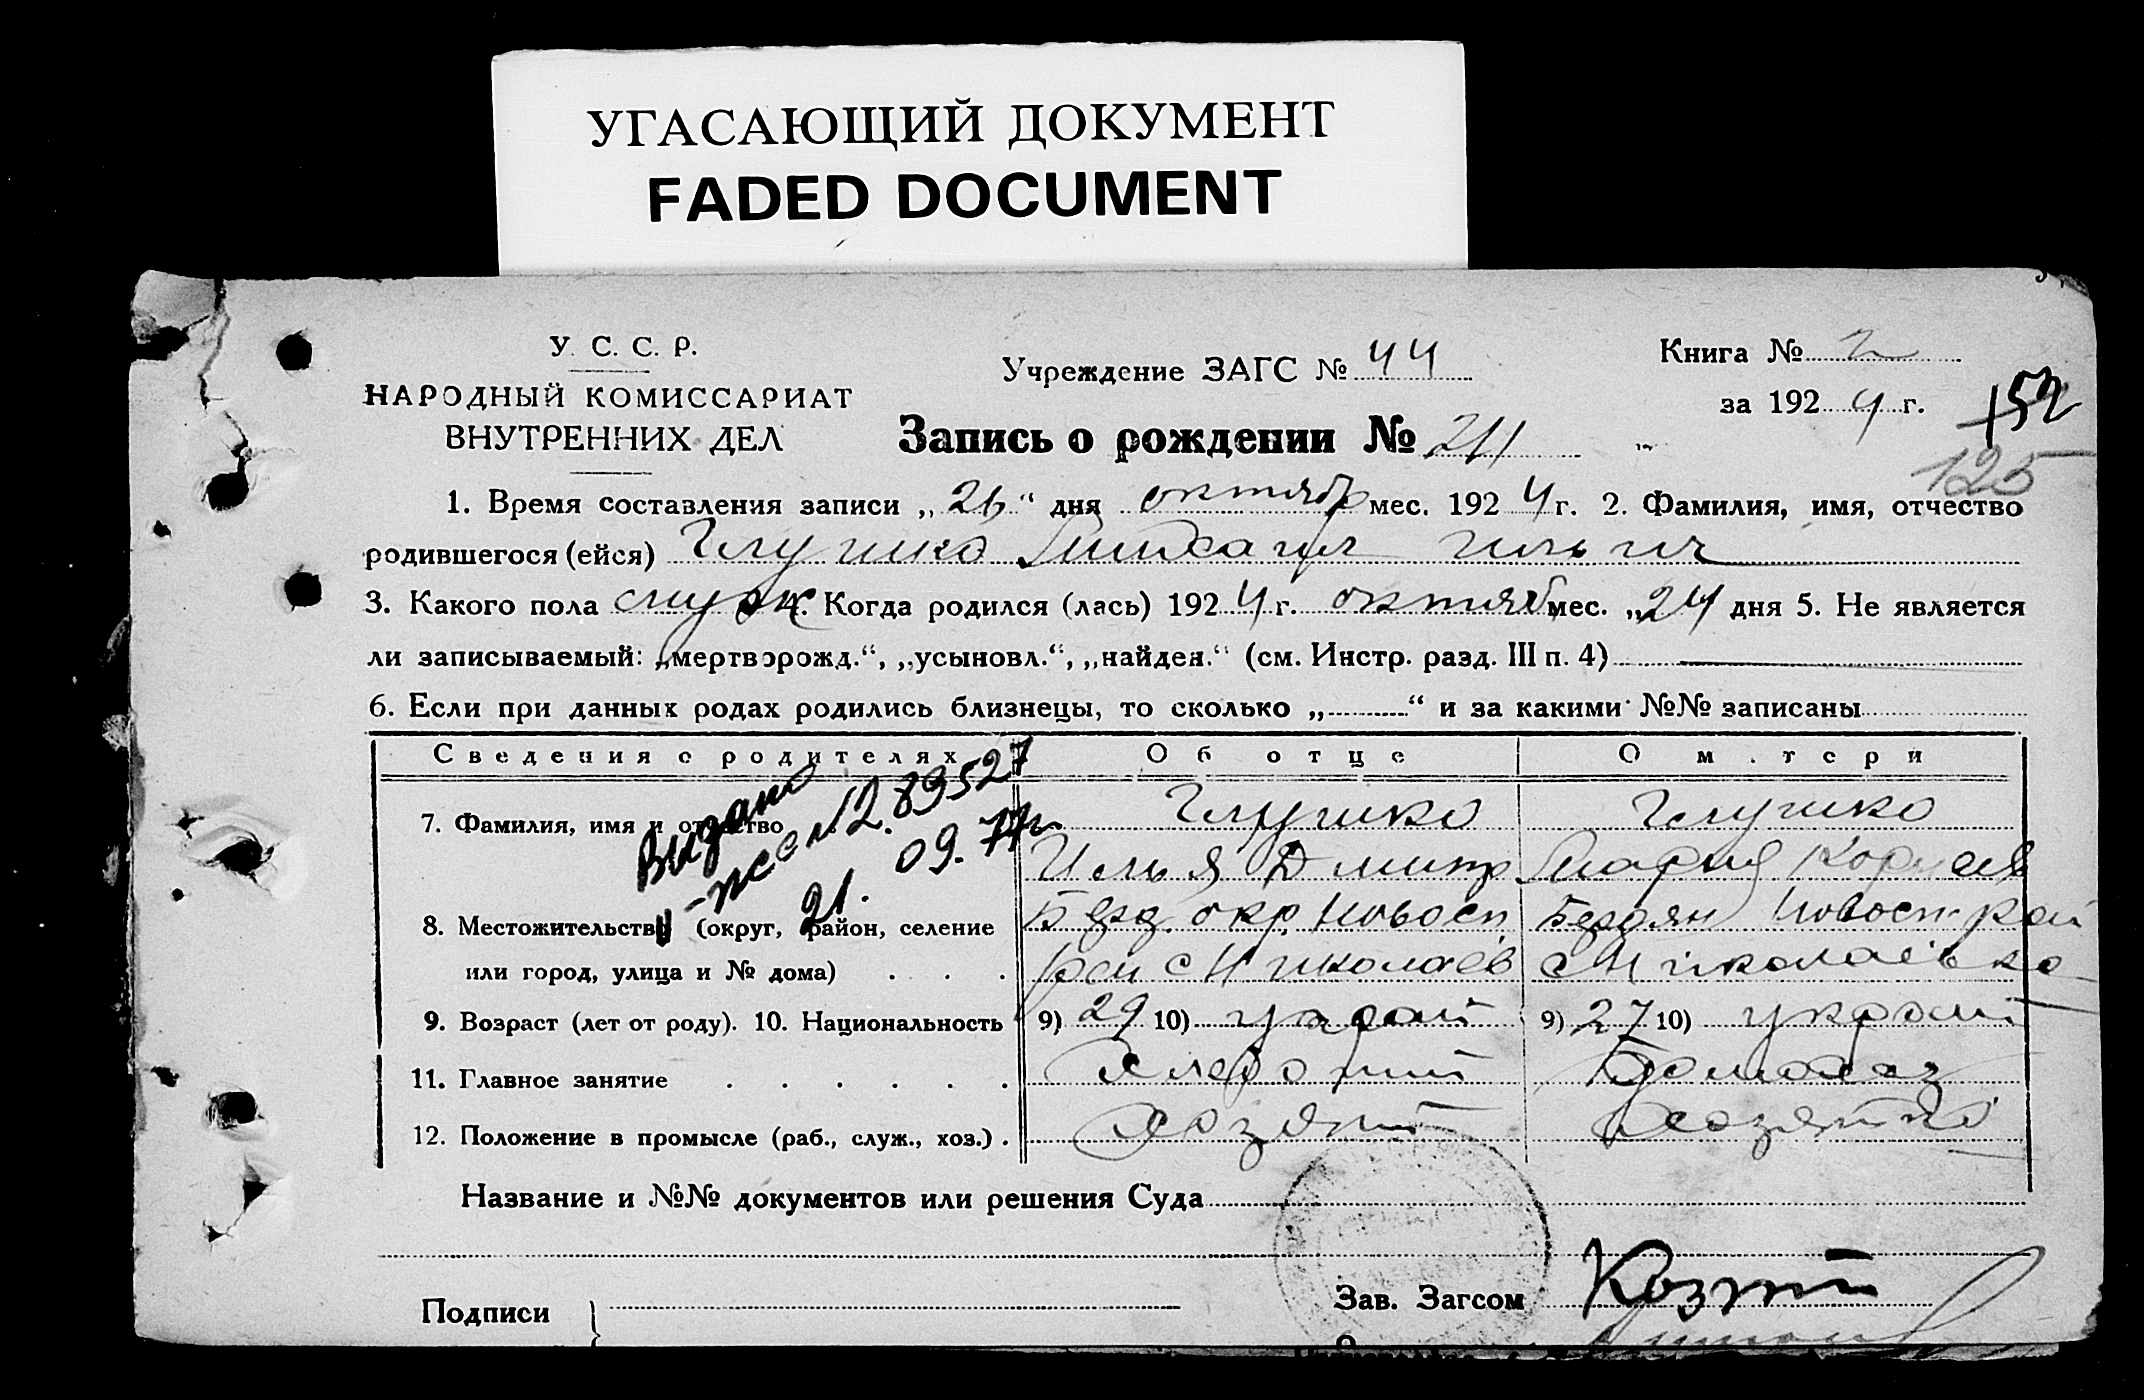 УГАСАЮЩИЙ ДОКУМЕНТ
FADED DOCUMENT
У. С. С. Р.
НАРОДНЫЙ КОМИССАРИАТ
ВНУТРЕННИХ ДЕЛ
Учреждение ЗАГС № 44
Книга № 2
за 1924 г.
152
125
Запись о рождении № 211
1. Время составления записи „26“ дня октябр мес. 1924 г. 2. Фамилия, имя, отчество
родившегося (ейся) Глушко Михаил Ильич
3. Какого пола муж 4. Когда родился (лась) 1924 г. октяб мес. „24 дня 5. Не является
ли записываемый: „мертворожд.“, „усыновл.“, „найден.“ (см. Инстр. разд. III п. 4)
6. Если при данных родах родились близнецы, то сколько „ “ и за какими №№ записаны
Сведения о родителях Об отце О матери
7. Фамилия, имя и отчество Глушко Глушко
Илья Дмитр Мария Корнеев
8. Местожительство (округ, район, селение Бердян Новосп рай
или город, улица и № дома) рай с Николаев с Николаевка
9. Возраст (лет от роду). 10. Национальность 9) 29 10) украин 9) 27 10) украин
11. Главное занятие Хлебопаш Домохаз
12. Положение в промысле (раб., служ., хоз.) Хозяин Хозяйка
Выдано
289527
21. 09. 77г
Название и №№ документов или решения Суда
Подписи
Зав. Загсом